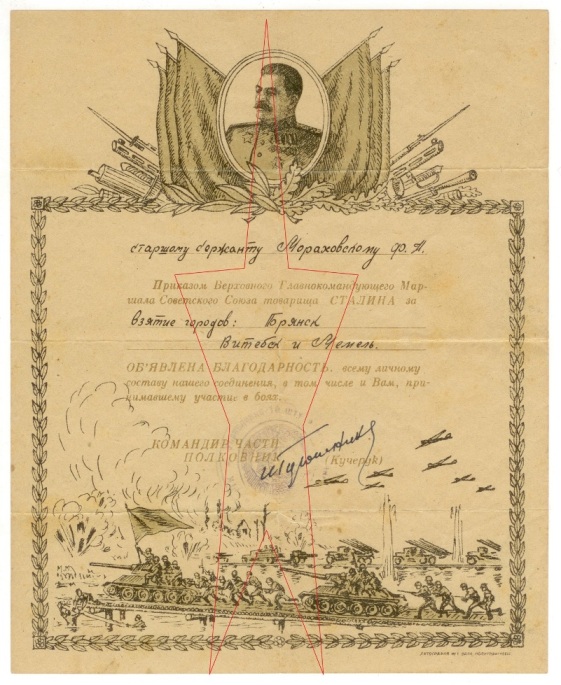 старшому сержанту Мораховскому Ф. А.
Приказом Верховного Главнокомандующего Мар-
шала Советского Союза товарища СТАЛИНА за
взятие городов: Брянск
Витебск и Мемель.
ОБ'ЯВЛЕНА БЛАГОДАРНОСТЬ, всему личному
составу нашего соединения, в том числе и Вам, при-
нимавшему участие в боях.
КОМАНДИР ЧАСТИ
ПОЛКОВНИК
(Кучерук)